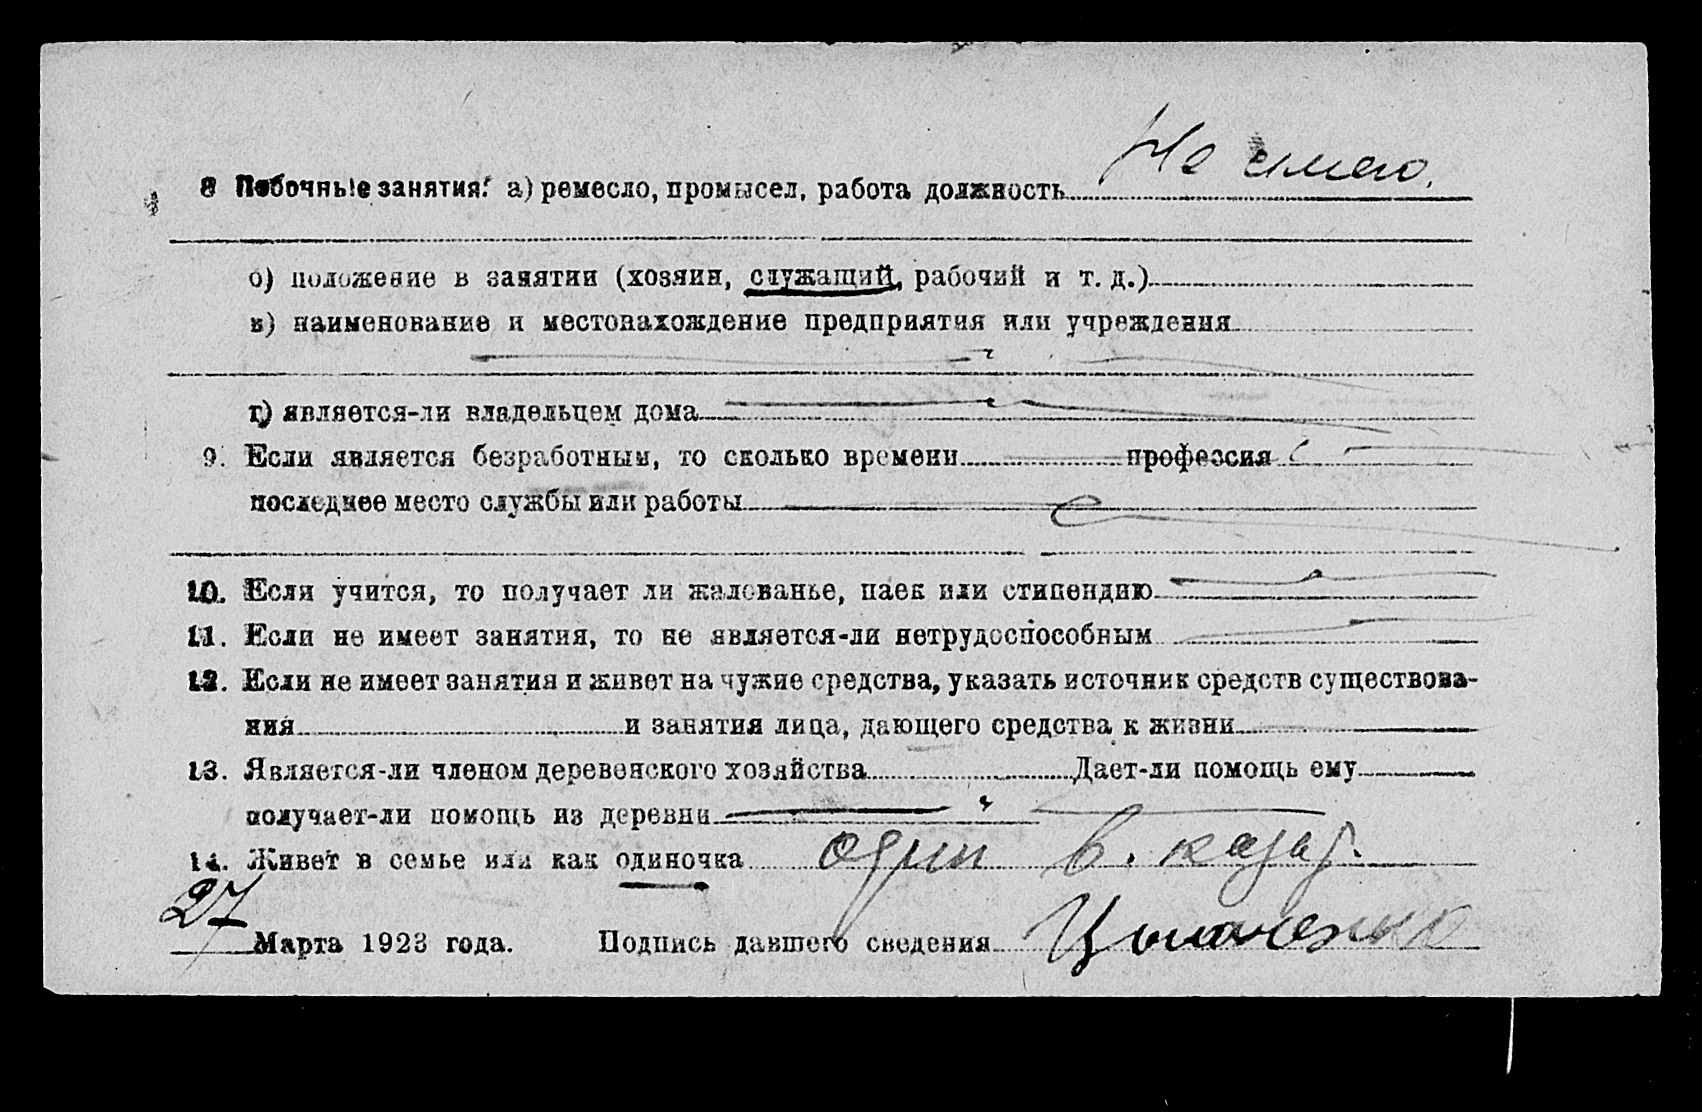 8 Побочные занятия: а) ремесло, промысел, работа должность Не имею.
б) положение в занятии (хозяин, служащий, рабочий и т. д.)
в) наименование и местонахождение предприятия или учреждения
г) является-ли владельцем дома
9. Если является безработным, то сколько времени профессия
последнее место службы или работы
10. Если учится, то получает ли жалованье, паек или стипендию
11. Если не имеет занятия, то не является-ли нетрудоспособным
12. Если не имеет занятия и живет на чужие средства, указать источник средств существова-
ния и занятия лица, дающего средства к жизни
13. Является-ли членом деревенского хозяйства Дает-ли помощь ему
получает-ли помощь из деревни
14. Живет в семье или как одиночка один в.
27 Марта 1923 года. Подпись давшего сведения